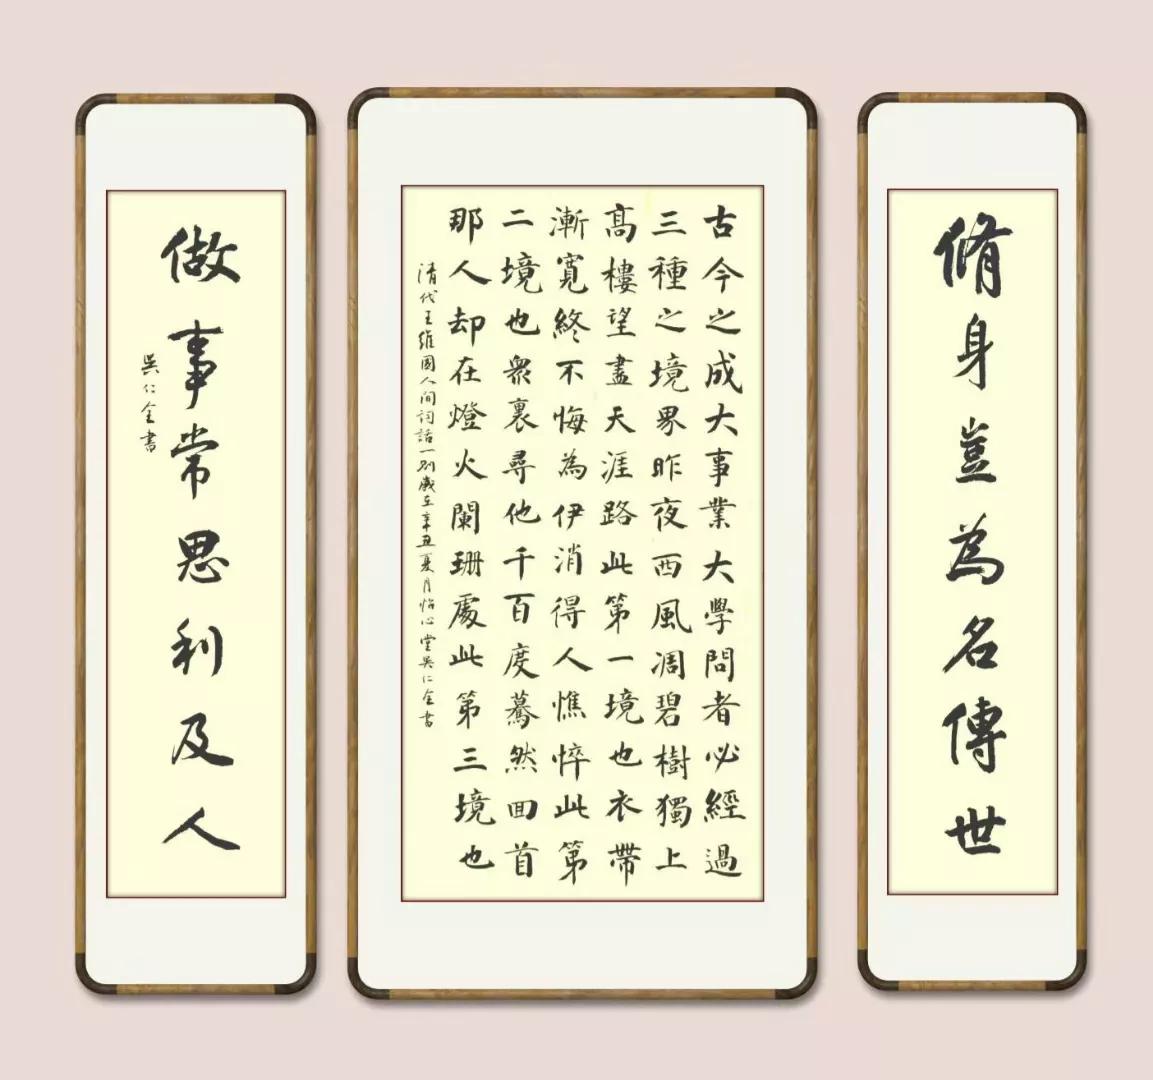 脩身豈為名傳世
古今之成大事業大學問者必經過
三種之境界昨夜西風凋碧樹獨上
髙樓望盡天涯路此第一境也衣帶
漸寬終不悔為伊消得人憔悴此第
二境也衆裏尋他千百度驀然囬首
那人却在燈火闌珊處此第三境也
清代王維國人间詞話一則歲在辛丑夏月怡心堂吳仁全書
做事常思利及人
吳仁全書